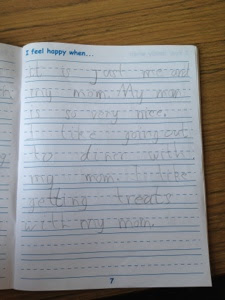 I feel happy when...
it is just me and
my mom. My mom
is so very nice.
I like going out
to diner with
my mom. I like
getting treats
with my mom.
7